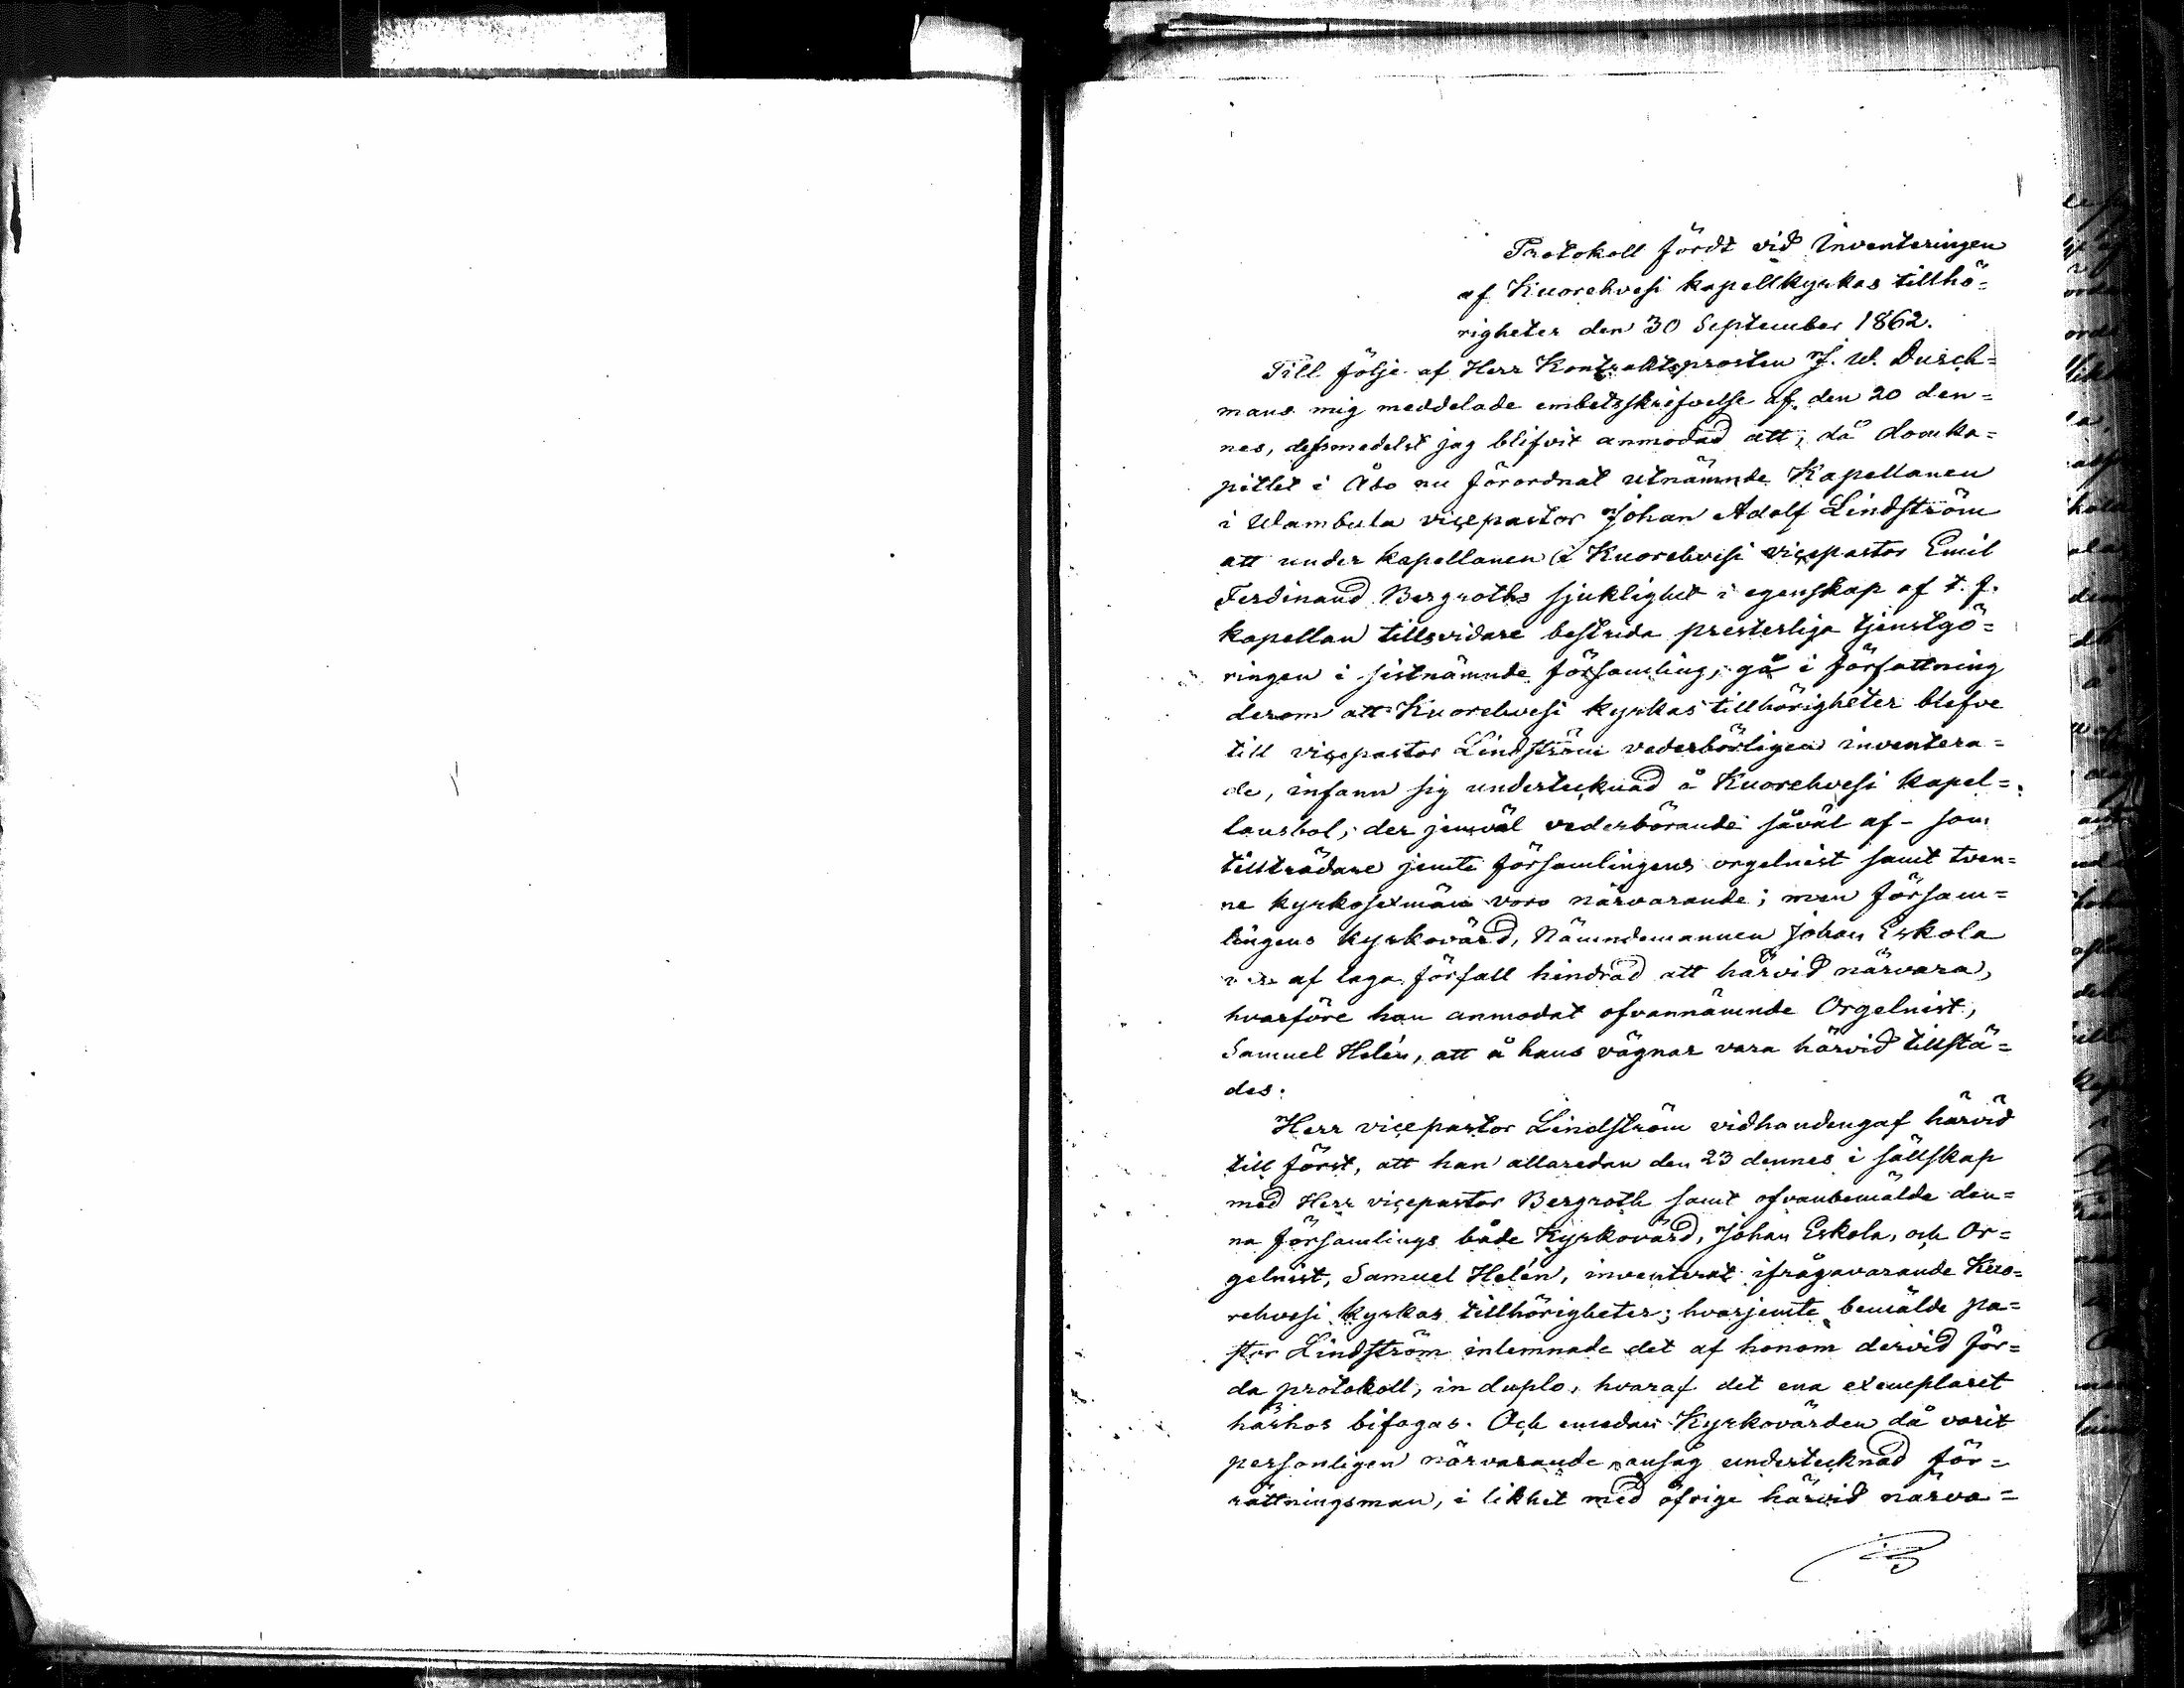 Protokoll fördt vid Inventeringen
af Kuorehvesi kapellkyrkas tillhö=
righeter den 30 September 1862.
Till följe af Herr Kontraktsprosten J. W. Durch=
mans mig meddelade embetsskrifvelse af den 20 den=
nes, dessmedelst jag blifvit anmodad att, då domka=
pitlet i Åbo nu förordnat utnämnde Kapellanen
i Wambula vicepastor Johan Adolf Lindström
att under kapellanen i Kuorehvesi vicepastor Emil
Ferdinand Bergroths sjuklighet i egenskap af t. f.
kapellan tillsvidare bestrida presterliga tjenstgö=
ringen i sistnämnde församling, gå i författning
derom att Kuorehvesi kyrkas tillhörigheter blefve
till vicepastor Lindström vederbörligen inventera=
de, infann sig undertecknad å Kuorehvesi kapel=
lansbol, der jemväl vederbörande såväl af- som
tillträdare jemte församlingens orgelnist samt tven=
ne kyrkosexmän voro närvarande; men försam=
lingens kyrkovärd, Nämndemannen Johan Eskola
var af laga förfall hindrad att härvid närvara,
hvarföre han anmodat ofvannämnde Orgelnist,
Samuel Helén, att å hans vägnar vara härvid tillstä=
des.
Herr vicepastor Lindström vidhandengaf härvid
till först, att han allaredan den 23 dennes i sällskap
med Herr vicepastor Bergroth samt ofvanbemälde den=
na församlings både Kyrkovärd, Johan Eskola, och Or=
gelnist, Samuel Helén, inventerat ifrågavarande Kuo=
rehvesi kyrkas tillhörigheter; hvarjemte bemälde pa=
stor Lindström inlemnade det af honom dervid för=
da protokoll, in duplo, hvaraf det ena exemplaret
härhos bifogas. Och emedan Kyrkovärden då varit
personligen närvarande, ansåg undertecknad för=
rättningsman, i likhet med öfrige härvid närva=